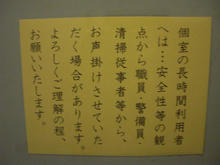 個室の長時間利用者
へは…安全性等の観
点から職員・警備員・
清掃従事者等から、
お声掛けさせていた
だく場合があります。
よろしくご理解の程、
お願いいたします。